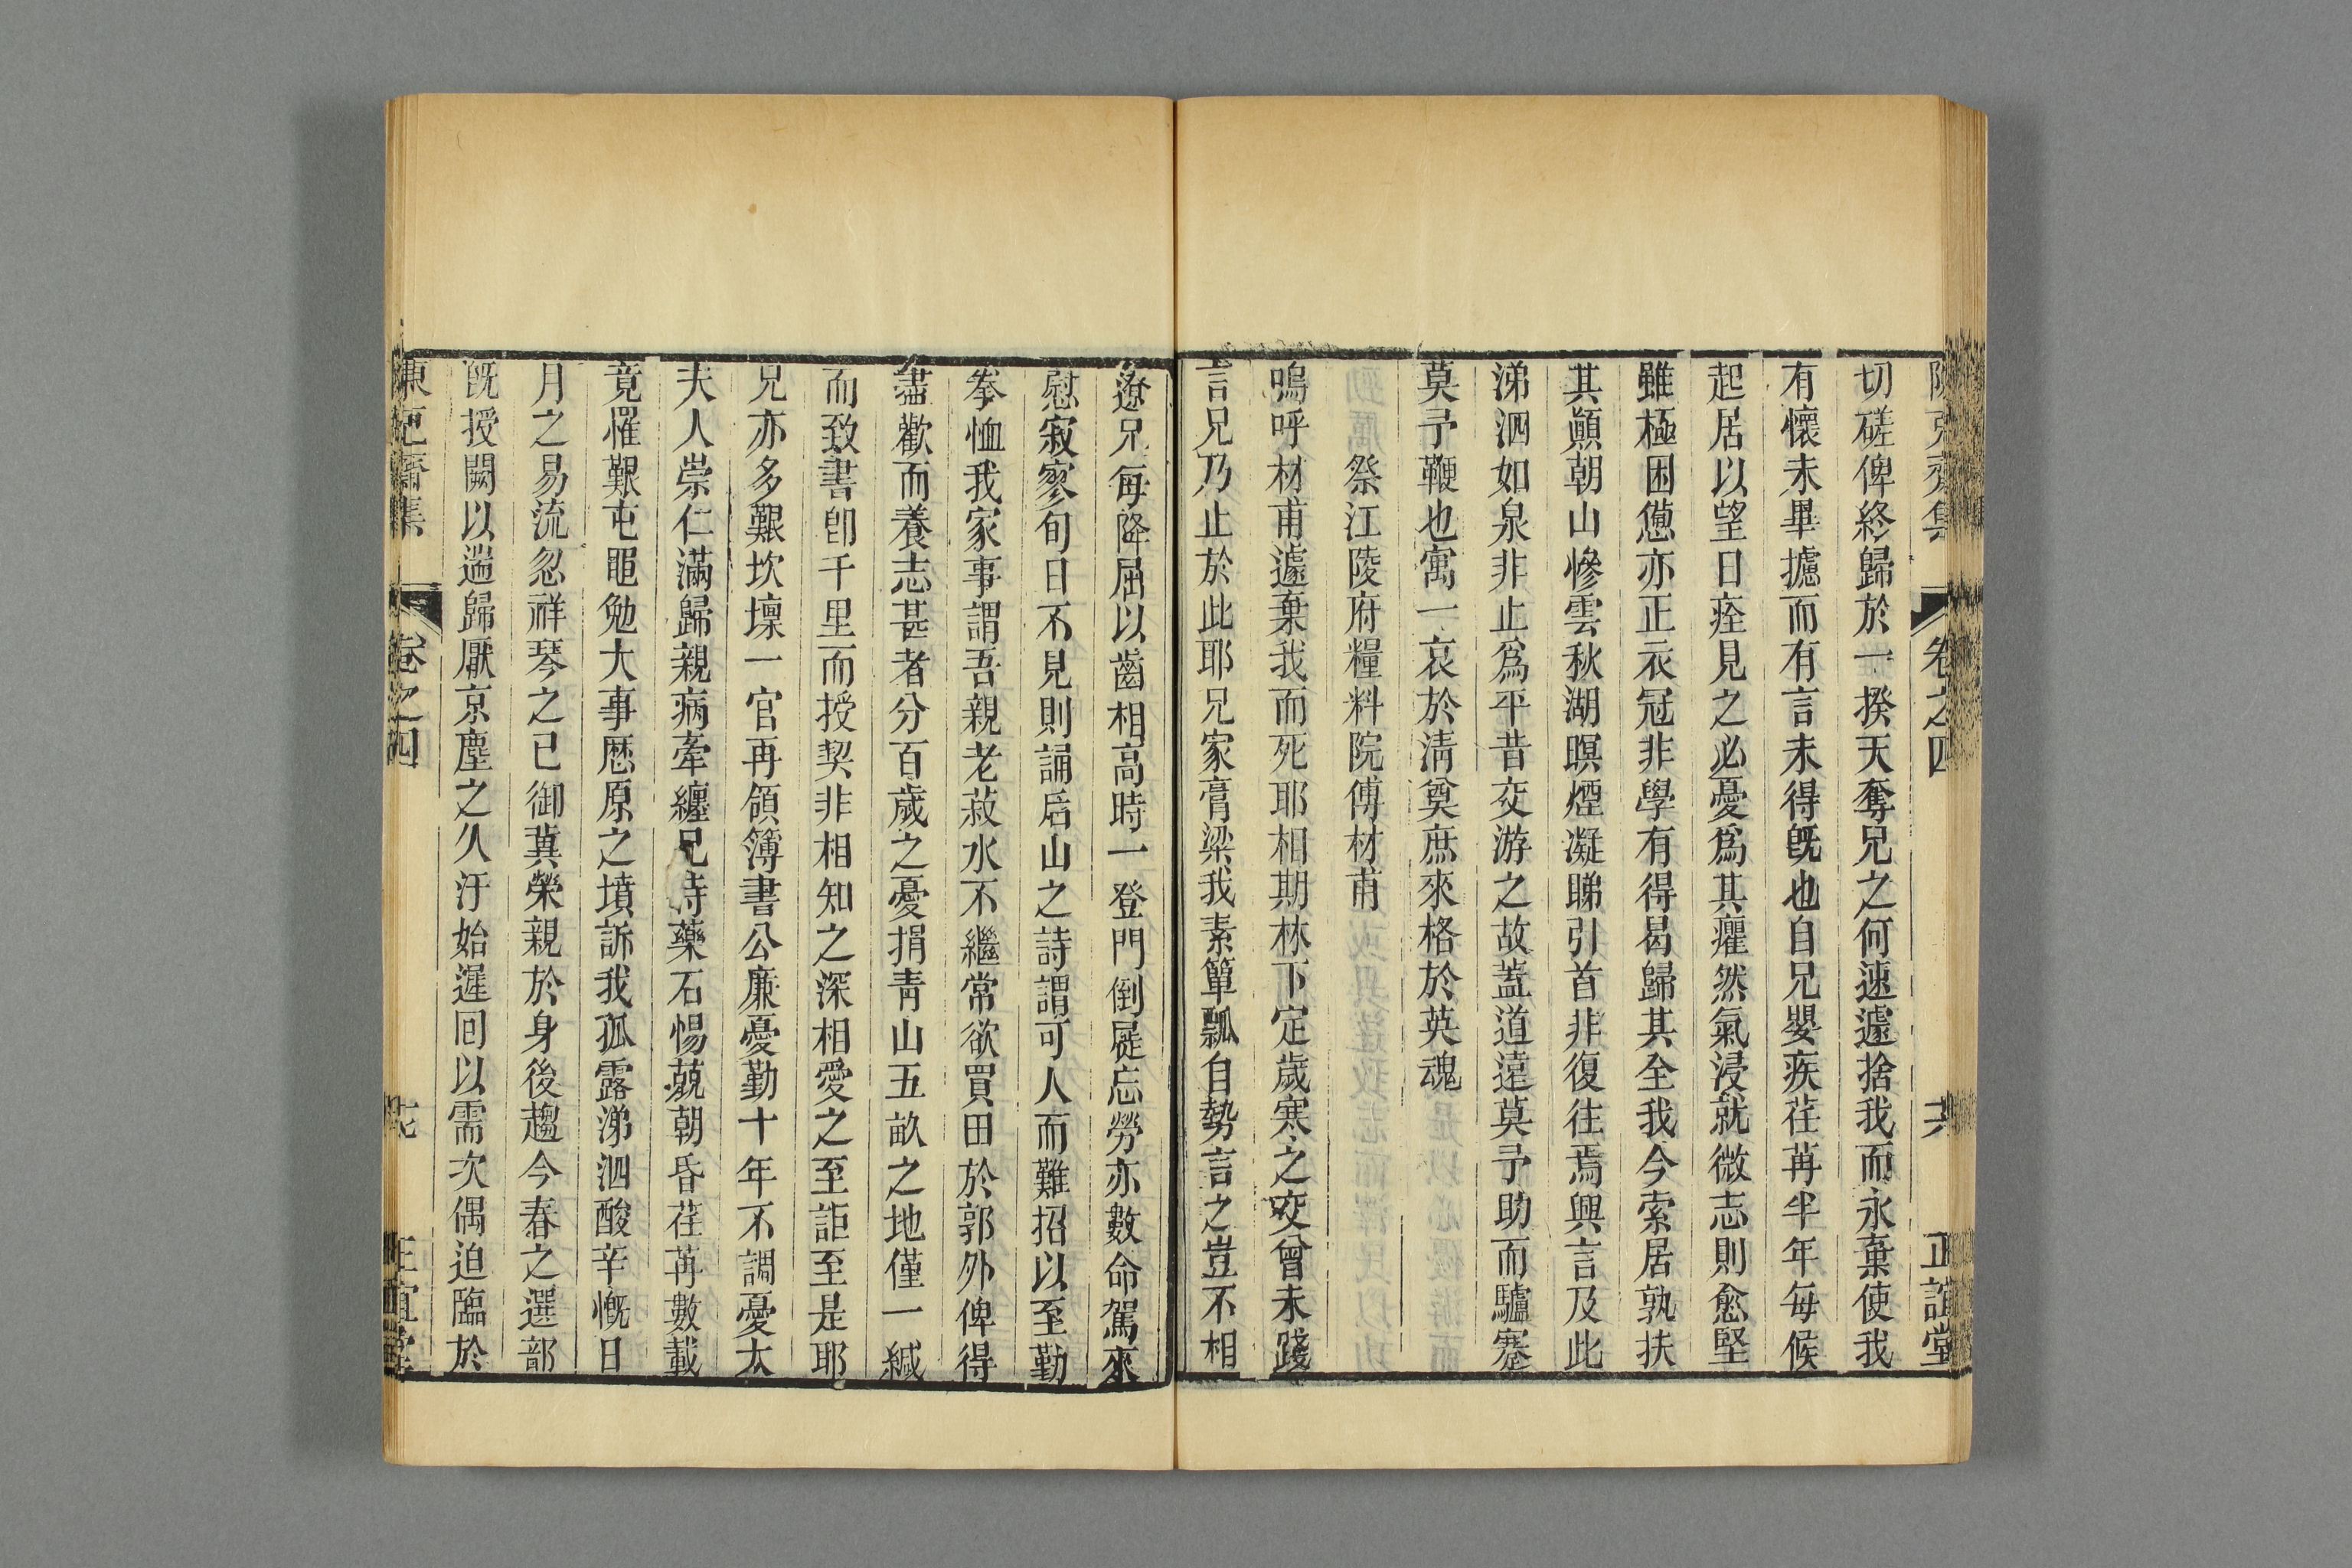 陳克齋集 卷之四 共 正誼堂
切磋俾終歸於一揆天奪兄之何速遽捨我而永棄使我
有懷未畢攄而有言未得旣也自兄嬰疾荏苒半年每候
起居以望日痊見之必憂爲其癯然氣浸就微志則愈堅
雖極困憊亦正衣冠非學有得曷歸其全我今索居孰扶
其顚朝山慘雲秋湖暝煙凝睇引首非復往焉興言及此
涕泗如泉非止爲平昔交游之故蓋道遠莫予助而驢蹇
莫予鞭也寓一哀於淸奠庶來格於英魂
祭江陵府糧料院傅材甫
嗚呼材甫遽棄我而死耶相期林下定歲寒之交曾未踐
言兄乃止於此耶兄家膏粱我素簞瓢自勢言之豈不相
遼兄每降屈以齒相高時一登門倒屣忘勞亦數命駕來
慰寂寥旬日不見則誦后山之詩謂可人而難招以至勤
拳恤我家事謂吾親老菽水不繼常欲買田於郭外俾得
盡歡而養志甚者分百歲之憂捐靑山五畝之地僅一緘
而致書卽千里而授契非相知之深相愛之至詎至是耶
兄亦多艱坎壈一官再領簿書公廉憂勤十年不調憂太
夫人崇仁滿歸親病牽纏兄侍藥石惕兢朝昏荏苒數載
竟罹艱屯黽勉大事愿原之墳訴我孤露涕泗酸辛慨日
月之易流忽祥琴之已御冀榮親於身後趨今春之選部
旣授闕以遄歸厭京塵之久汙始遲囘以需次偶迫臨於
陳克齋集 卷之四 七 正誼堂